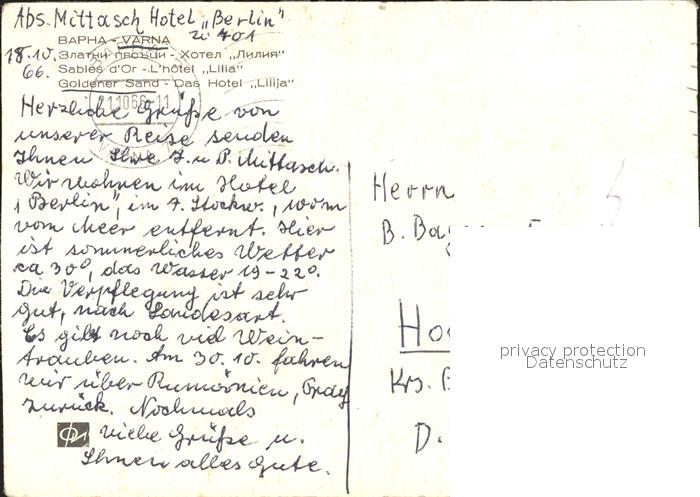 Abs. Mittasch Hotel „Berlin"
Zi 701
ВАРНА - VARNA
18.10. Златни пясъци - Хотел „Лилия"
66. Sables d'Or - L'hôtel „Lilia"
Goldener Sand - Das Hotel „Lilija"
Herzliche Grüße von
unserer Reise senden
Ihnen Ihre J. u P. Mittasch.
Wir wohnen im Hotel
„Berlin", im 7. Stockw.,
vom Meer entfernt. Hier
ist sommerliches Wetter
ca 30°, das Wasser 19-22°.
Die Verpflegung ist sehr
gut, nach Landesart.
Es gibt noch viel Wein-
trauben. Am 30. 10. fahren
wir über Rumänien,
zurück. Nochmals
viele Grüße u.
Ihnen alles Gute.
Herrn
B.
Krs.
D.
privacy protection
Datenschutz